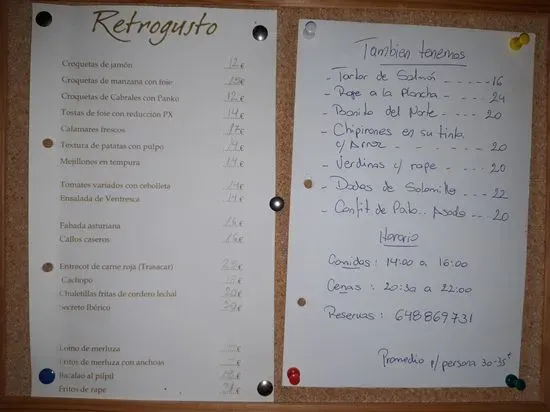 Retrogusto
Croquetas de jamón 12 €
Croquetas de manzana con foie €
Croquetas de Cabrales con Panko 12 €
Tostas de foie con reducción PX 14 €
Calamares frescos 17 €
Textura de patatas con pulpo €
Mejillones en tempura 14 €
Tomates variados con cebolleta 14 €
Ensalada de Ventresca 14 €
Fabada asturiana 15 €
Callos caseros 15 €
Entrecot de carne roja (Trasacar) €
Cachopo €
Chuletillas fritas de cordero lechal 20 €
Secreto Ibérico €
Lomo de merluza €
Fritos de merluza con anchoas €
Bacalao al pilpil €
Fritos de rape €
Tambien tenemos
- Tartar de Salmón ----- 16
- Rape a la Plancha - - - - 24
- Bonito del Norte - - - - 20
- Chipirones en su tinta
c/ Arroz - - - - 20
- Verdinas c/ rape - - - - 20
- de Solomillo - - - 22
- Confit de Pato.. Asado.. 20
Horario
Comidas : 14:00 a 16:00
Cenas : 20:30 a 22:00
Reservas : 648869731
Promedio p/persona 30-35€